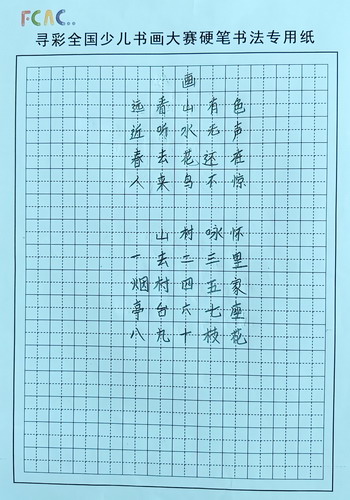 FCAC..
寻彩全国少儿书画大赛硬笔书法专用纸
画
远看山有色
近听水无声
春去花还在
人来鸟不惊
山村咏怀
一去二三里
烟村四五家
亭台六七座
八九十枝花